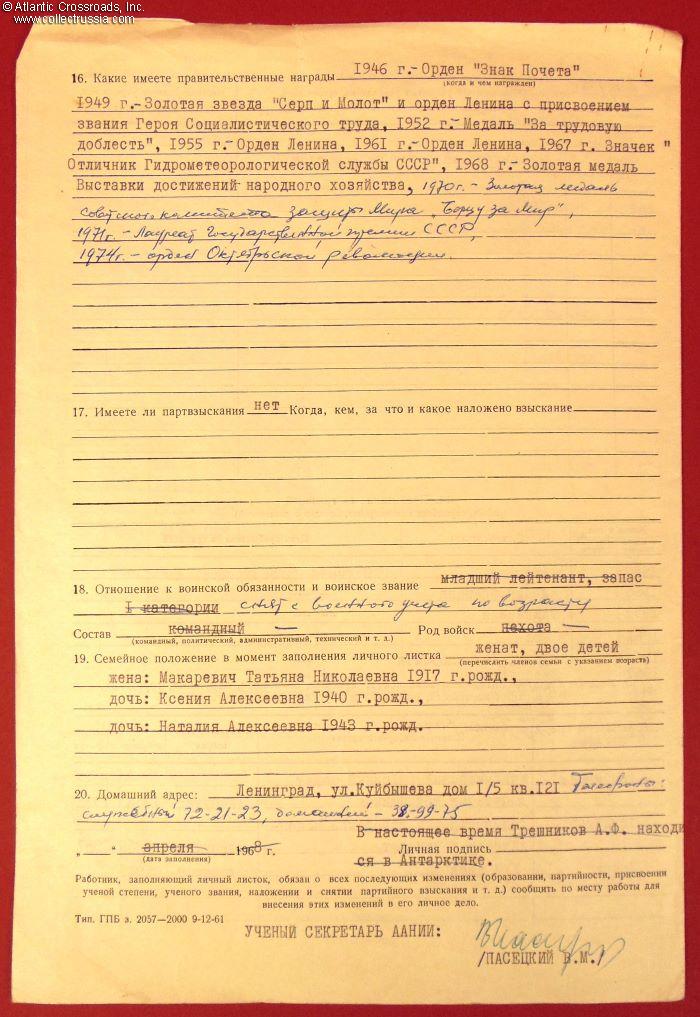 © Atlantic Crossroads, Inc.
www.collectrussia.com
16. Какие имеете правительственные награды 1946 г.-Орден "Знак Почета"
(когда и чем награжден)
1949 г.-Золотая звезда "Серп и Молот" и орден Ленина с присвоением
звания Героя Социалистического труда, 1952 г.-Медаль "За трудовую
доблесть", 1955 г.-Орден Ленина, 1961 г.-Орден Ленина, 1967 г. Значек "
Отличник Гидрометеорологической службы СССР", 1968 г.-Золотая медаль
Выставки достижений народного хозяйства, 1970г. - Золотая медаль
Советского комитета защиты Мира "Борцу за Мир",
1971г. - Лауреат Государственной премии СССР,
1974г. - орден Октябрьской революции.
17. Имеете ли партвзыскания нет Когда, кем, за что и какое наложено взыскание
18. Отношение к воинской обязанности и воинское звание младший лейтенант, запас
I категории снят с военного учета по возрасту
Состав командный — Род войск пехота —
(командный, политический, административный, технический и т. д.)
19. Семейное положение в момент заполнения личного листка женат, двое детей
(перечислить членов семьи с указанием возраста)
жена: Макаревич Татьяна Николаевна 1917 г.рожд.,
дочь: Ксения Алексеевна 1940 г.рожд.,
дочь: Наталия Алексеевна 1943 г.рожд.
20. Домашний адрес: Ленинград, ул.Куйбышева дом I/5 кв.I2I Телефоны:
служебный 72-21-23, домашний - 38-99-75
В настоящее время Трешников А.Ф. находи
" " апреля 1968 г. Личная подпись
(дата заполнения) ся в Антарктике.
Работник, заполняющий личный листок, обязан о всех последующих изменениях (образовании, партийности, присвоении
ученой степени, ученого звания, наложении и снятии партийного взыскания и т. д.) сообщить по месту работы для
внесения этих изменений в его личное дело.
Тип. ГПБ з. 2057—2000 9-12-61
УЧЕНЫЙ СЕКРЕТАРЬ ААНИИ:
/ПАСЕЦКИЙ В.М./